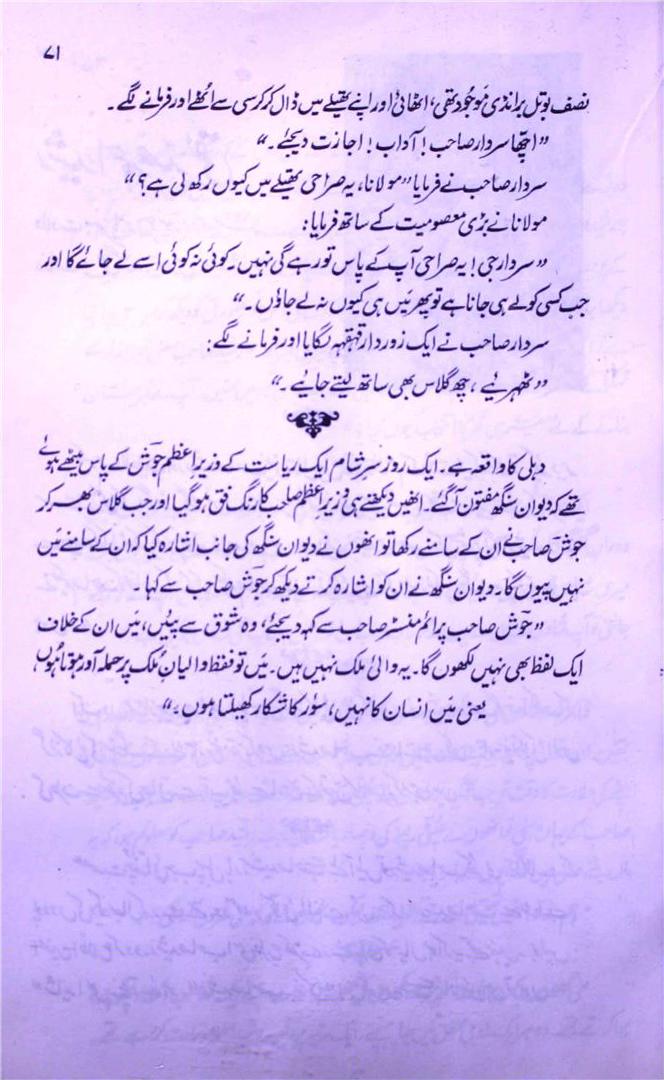 ۷۱
نصف بوتل برانڈی موجود تھی، اٹھائی اور اپنے تھیلے میں ڈال کر کرسی سے اُٹھے اور فرمانے لگے۔
”اچھا سردار صاحب! آداب! اجازت دیجئے۔“
سردار صاحب نے فرمایا ”مولانا، یہ صراحی تھیلے میں کیوں رکھ لی ہے؟“
مولانا نے بڑی معصومیت کے ساتھ فرمایا:
”سردار جی! یہ صراحی آپ کے پاس تو رہے گی نہیں۔ کوئی نہ کوئی اسے لے جائے گا اور
جب کسی کو لے ہی جانا ہے تو پھر میں ہی کیوں نہ لے جاؤں۔“
سردار صاحب نے ایک زور دار قہقہہ لگایا اور فرمانے لگے:
”ٹھہریے، چھ گلاس بھی ساتھ لیتے جایئے۔“
دہلی کا واقعہ ہے۔ ایک روز سرِ شام ایک ریاست کے وزیرِ اعظم جوشؔ کے پاس بیٹھے ہوئے
تھے کہ دیوان سنگھ مفتون آ گئے۔ انھیں دیکھتے ہی وزیرِ اعظم صاحب کا رنگ فق ہو گیا اور جب گلاس بھر کر
جوشؔ صاحب نے ان کے سامنے رکھا تو انھوں نے دیوان سنگھ کی جانب اشارہ کیا کہ ان کے سامنے میں
نہیں پیوں گا۔ دیوان سنگھ نے ان کو اشارہ کرتے دیکھ کر جوشؔ صاحب سے کہا
”جوشؔ صاحب پرائم منسٹر صاحب سے کہہ دیجئے، وہ شوق سے پئیں، میں ان کے خلاف
ایک لفظ بھی نہیں لکھوں گا۔ یہ والیٔ ملک نہیں ہیں۔ میں تو فقط والیانِ مُلک پر حملہ آور ہوتا ہُوں
یعنی میں انسان کا نہیں، سوٗر کا شکار کھیلتا ہوں۔“